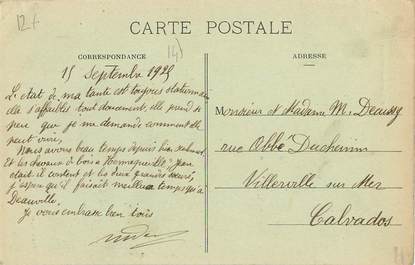 12f
CARTE POSTALE
CORRESPONDANCE
ADRESSE
15 Septembre 1925
L'état de ma tante est toujours stationnaire
elle s'affaiblit tout doucement, elle prend si
peu que je me demande comment elle
peut vivre,
Nous avons beau temps depuis hier seulement
et les chevaux de bois à
était il content et les deux
j'espère qu'il faisait meilleur temps qu'à
Deauville.
Je vous embrasse bien tous
Monsieur et Madame M.
rue Abbé Duchemin
Villerville sur Mer
Calvados